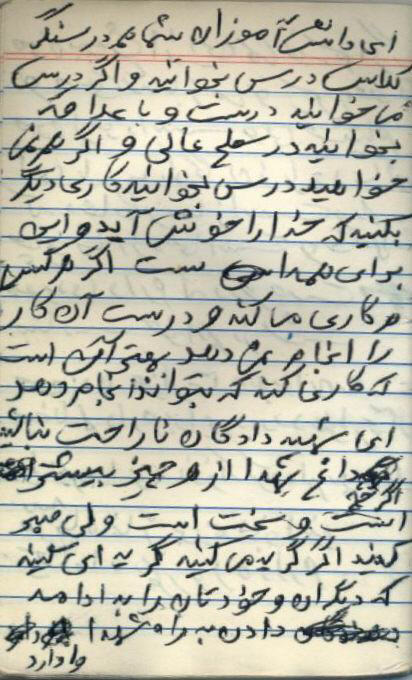 ای دانش آموزان شما هم در سنگر
کلاس درس بخوانید و اگر درس
ما خوانید درست و با علاقه
بخوانید در سطح عالی و اگر
خواهید درس بخوانید کاری دیگر
بکنید که خدا را خوش آید و این
برای همه است اگر هرکس
هر کاری ما کند و درست آن کار
را انجام دهد بهتر آن است
که کاری کند که بتواند انجام دهد
ای شهید دادگان ناراحت نباشید
داغ شهدا از هر چیز بیشتر
اگرچه
است و سخت است ولی صبر
کنید اگر گریه می کنید گریه ای کنید
که دیگران و خودتان را به ادامه
دادن به راه شهدا
وادارد